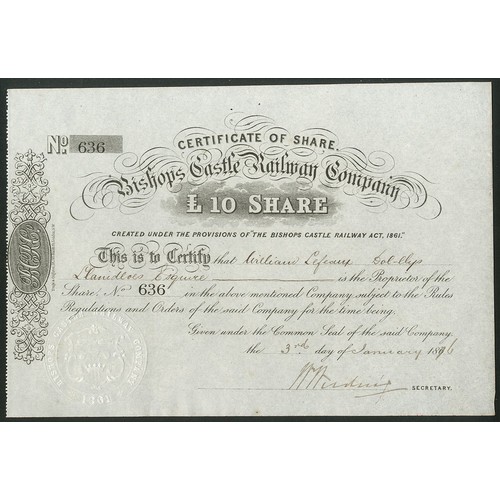 No. 636
CERTIFICATE OF SHARE.
Bishops Castle Railway Company
£10 SHARE
CREATED UNDER THE PROVISIONS OF "THE BISHOPS CASTLE RAILWAY ACT, 1861."
This is to Certify that William Lefeaux
Llanidloes Esquire is the Proprietor of the
Share, No. 636 in the above mentioned Company subject to the Rules
Regulations and Orders of the said Company for the time being.
Given under the Common Seal of the said Company,
the 3rd day of January
SECRETARY.
1861